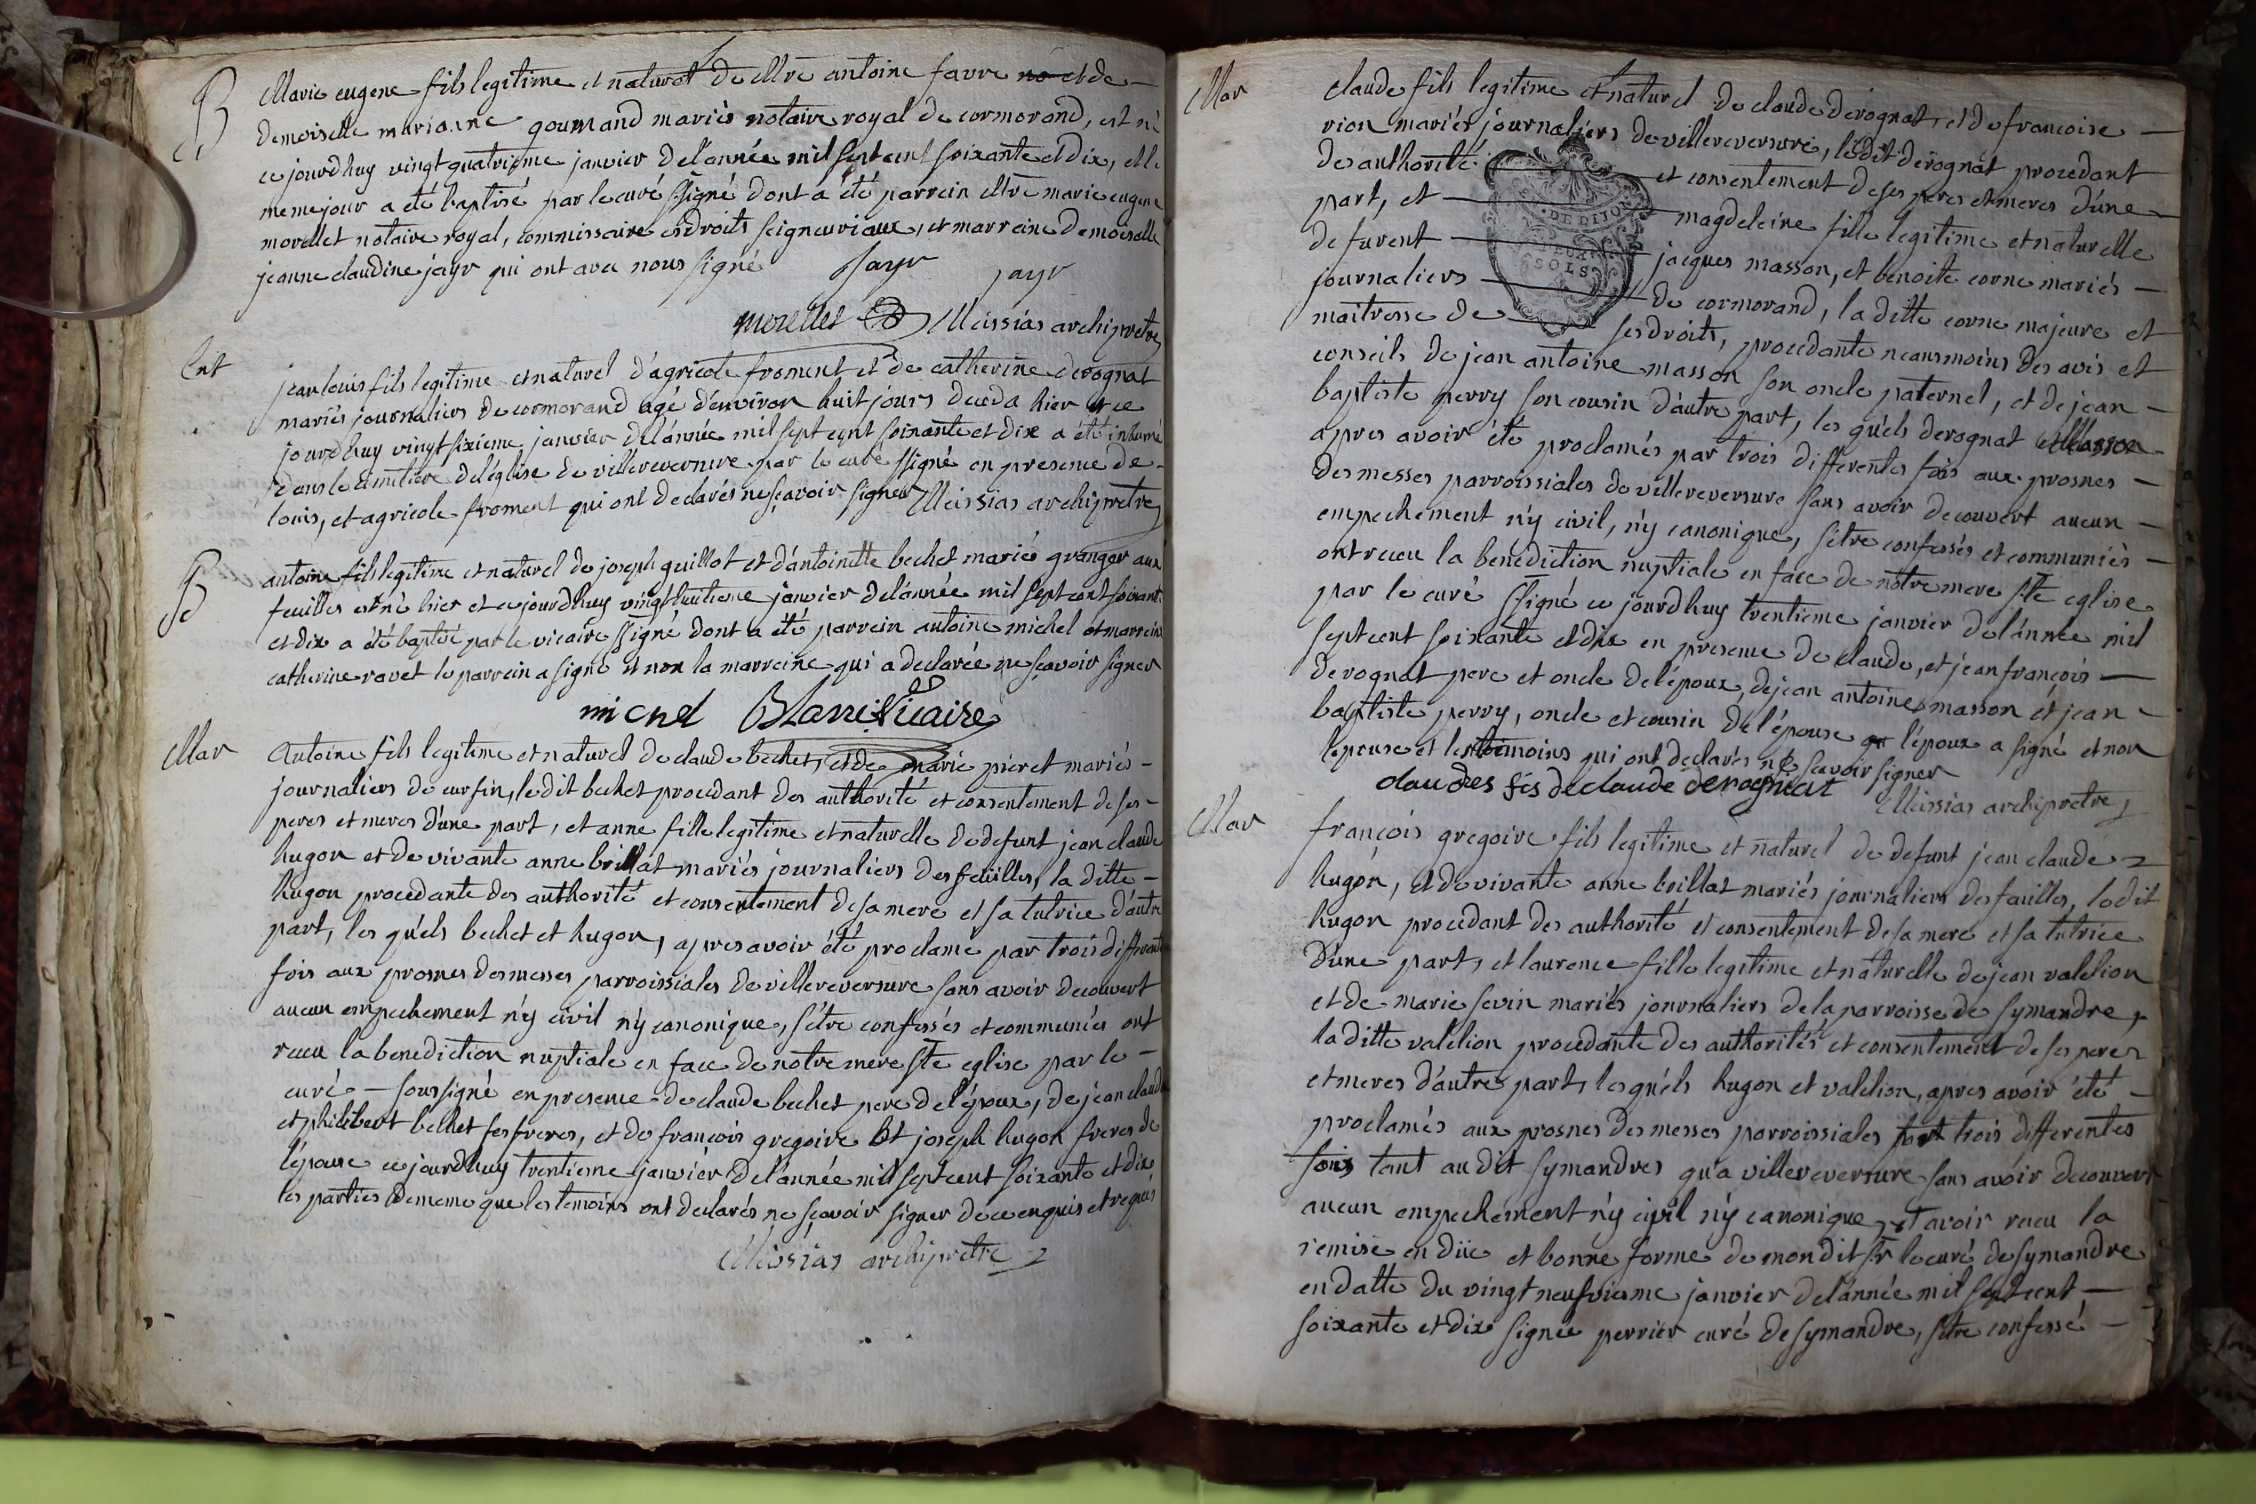 B
Marie eugene fils legitime et naturel de Mre antoine favre no et de
demoiselle marianne gourmand mariés notaire royal de cormorand, est né
ce jourdhuy vingt quatrieme janvier de l'année mil sept cent soixante et dix, et le
meme jour a été baptisé par le curé ssigné dont a été parrein Mre marie eugene
morellet notaire royal, commissaire es droits seigneuriaux, et marreine demoiselle
jeanne claudine jayr qui ont avec nous signé Jayr jayr
morellet Meissias archipretre
Ent
jean louis fils legitime et naturel d'agricole froment et de catherine derognat
mariés journaliers de cormorand agé d'environ huit jours deceda hier et ce
jourdhuy vingt sixieme janvier de l'année mil sept cent soixante et dix a été inhumé
dans le cimetiere de l'église de villereversure par le curé ssigné en presence de
louis, et agricole froment qui ont declarés ne sçavoir signer Meissias archipretre
B
antoine fils legitime et naturel de joseph guillot et d'antoinette bechet mariés granger aux
feuilles est né hier et ce jourdhuy vingt huitieme janvier de l'année mil sept cent soixante
et dix a été baptisé par le vicaire ssigné dont a été parrein antoine michel et marreine
catherine ravet le parrein a signé et non la marreine qui a declarée ne sçavoir signer
michel Vicaire
Mar
Antoine fils legitime et naturel de claude bechet, et de marie pieret mariés
journaliers de cursin, le dit bechet procedant des authorité et consentement de ses
peres et meres d'une part, et anne fille legitime et naturelle de defunt jean claude
hugon et de vivante anne brillat mariés journaliers des feüilles, la ditte
hugon procedante des authorité et consentement de sa mere et sa tutrice d'autre
part, les quéls bechet et hugon, apres avoir été proclamé par trois differente
fois aux prosnes des messes parroissiales de villereversure sans avoir decouvert
aucun empechement n'y civil n'y canonique, s'étre confessés et communiés ont
recu la benediction nuptiale en face de notre mere ste eglise par le
curé soussigné en presence de claude bechet pere de l'époux, de jean claude
et philibert bechet ses freres, et de françois gregoire et joseph hugon freres de
l'épouse ce jourdhuy trentieme janvier de l'année mil sept cent soixante et dix
les parties de meme que les temoins ont declarés ne sçavoir signer de ce enquis et requis
Meissias archipretre
Mar
claude fils legitime et naturel de claude derognat, et de francoise
rion mariés journaliers de villereversure, le dit derognat procedant
des authorité et consentement de ses peres et meres d'une
part, et magdeleine fille legitime et naturelle
de furent jacques masson, et benoite corne mariés
journaliers de cormorand, la ditte corne majeure et
maitresse de ses droits, procedante neansmoins des avis et
conseils de jean antoine masson son oncle paternel, et de jean
baptiste perry son cousin d'autre part, les quéls derognat et Masson
apres avoir été proclamés par trois differentes fois aux prosnes
des messes parroissiales de villereversure sans avoir decouvert aucun
empechement n'y civil, n'y canonique, s'étre confessés et communiés
ont recu la benediction nuptiale en face de nôtre mere ste eglise
par le curé ssigné ce jourdhuy trentieme janvier de l'année mil
sept cent soixante et dix en presence de claude, et jean françois
derognat pere et oncle de l'époux, de jean antoine masson et jean
baptiste perry, oncle et cousin de l'épouse l'époux a signé et non
l'epouse et les témoins qui ont declarés ne sçavoir signer
claudes fis de claude derognat
Meissias archipretre
Mar
françois gregoire fils legitime et naturel de defunt jean claude
hugon, et de vivante anne brillat mariés journaliers des fauilles, le dit
hugon procedant des authorité et consentement de sa mere et sa tutrice
d'une part, et laurence fille legitime et naturelle de jean valelion
et de marie sevin mariés journaliers de la parroisse de symandre,
la ditte valelion procedante des authorités et consentement de ses peres
et meres d'autre part, les quéls hugon et valelion, apres avoir été
proclamés aux prosnes des messes parroissiales part trois differentes
fois tant au dit symandres qu'a villereversure sans avoir decouvert
aucun empechement n'y civil n'y canonique, et avoir recu la
remise en düe et bonne forme de mon dit sr le curé de symandre
en datte du vingt neufvieme janvier de l'année mil sept cent
soixante et dix signée perrier curé de symandre, s'étre confessé
DE DIJON
DEUX
SOLS